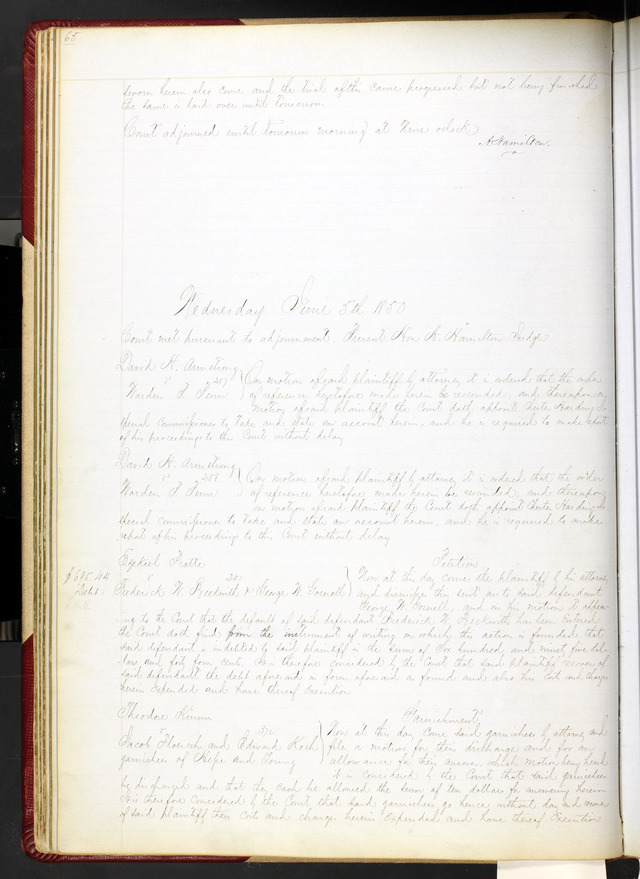 65
sworn herein also came and the trial of this cause progressed but not being finished
the same is laid over until tomorrow.
Court adjourned until tomorrow morning at Nine oclock
A Hamilton.
Wednesday June 5th 1850
Court met pursuant to adjournment. Present Hon A. Hamilton Judge
David H. Armstrong
Warden F
On motion of said plaintiff by attorney it is ordered that the order
of reference heretofore made herein be rescinded, and thereupon on
motion of said plaintiff the Court doth appoint Chester Harding
special commissioner to take and state an account herein, and he is required to make report
of his proceedings to this Court without delay
David H. Armstrong
Warden F
On motion of said plaintiff by attorney it is ordered that the order
of reference heretofore made herein be rescinded, and thereupon
on motion of said plaintiff the Court doth appoint Chester Harding a
special commissioner to take and state an account herein, and he is required to make
report of his proceedings to this Court without delay
Ezekiel
Petition
$695.44
Debt
Frederick W. Beckwith & George W.
Now at this day comes the plaintiff by his attorney
and dismisses this suit as to said defendant
George W. and on his motion it appear-
ing to the Court that the default of said defendant Frederick W. Beckwith has been entered
the Court doth find from the instrument of writing on which the action is founded that
said defendant is indebted to said plaintiff in the sum of Six hundred and ninety five dol-
lars and forty four cents. It is therefore considered by the Court that said plaintiff recover of
said defendant the debt aforesaid in form aforesaid as found and also his costs and charges
herein expended and have thereof execution
Theodore
Garnishment
Jacob and Edward Koch
garnishees of and Young
Now at this day come said garnishees by attorney and
file a motion for their discharge and for an
allowance for their answer, which motion being heard
it is considered by the Court that said garnishees
be discharged and that they each be allowed the sum of ten dollars for answering herein
It is therefore considered by the Court that said garnishees go hence without day and recover
of said plaintiff their costs and charges herein expended and have thereof Execution